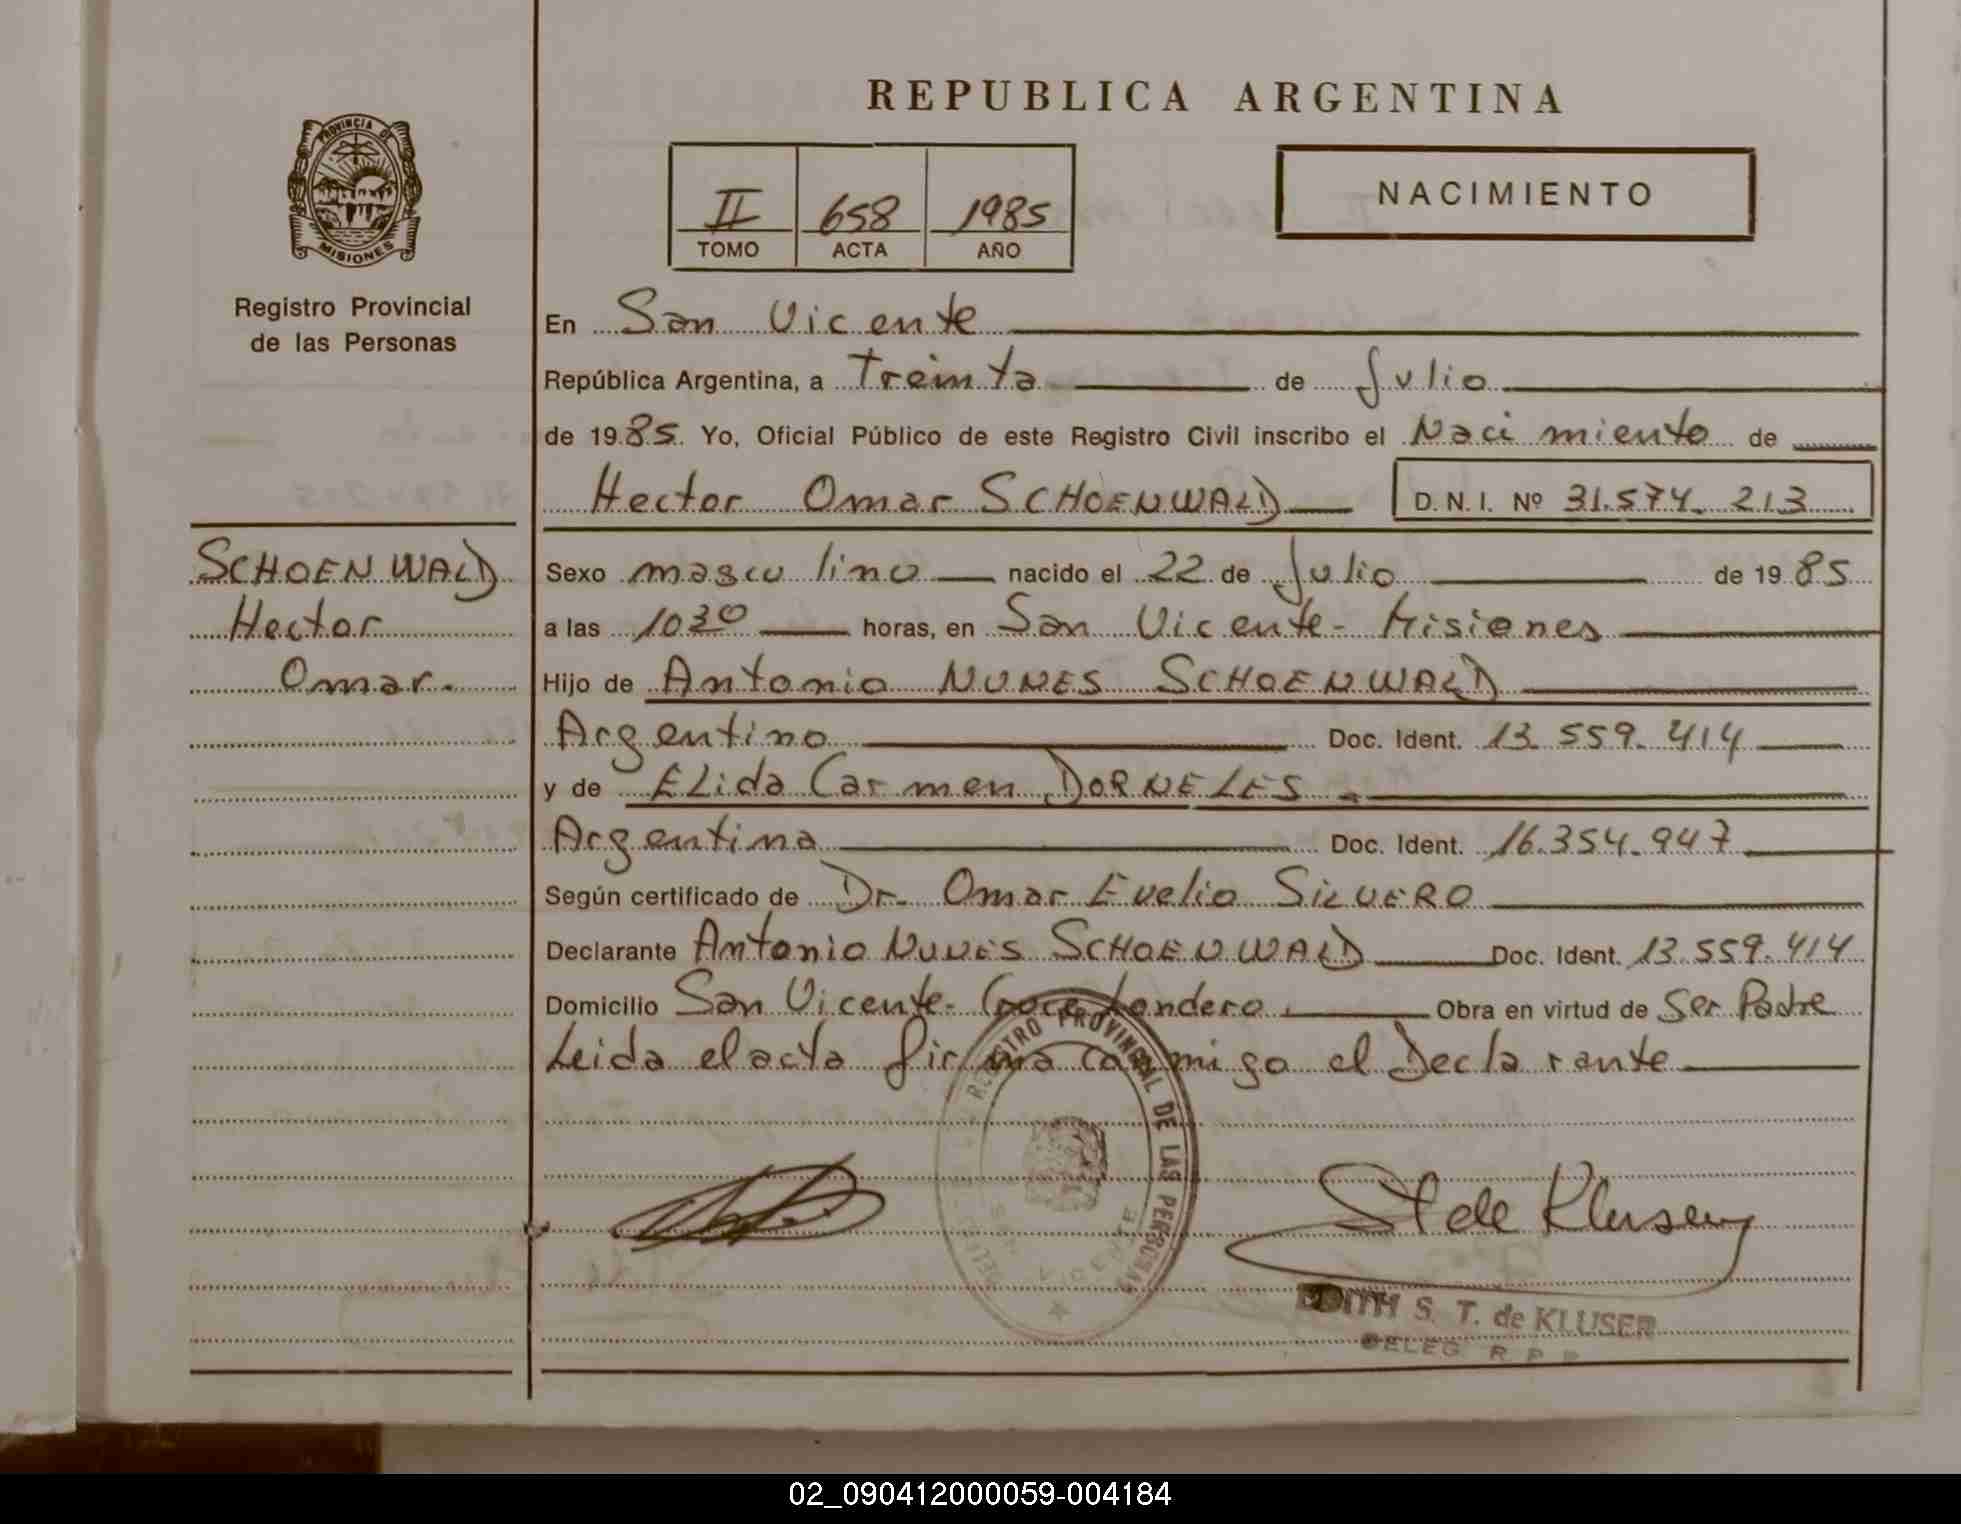 REPUBLICA ARGENTINA
PROVINCIA DE
MISIONES
Registro Provincial
de las Personas
II 658 1985
TOMO ACTA AÑO
NACIMIENTO
En San Vicente
República Argentina, a Treinta de Julio
de 1985. Yo, Oficial Público de este Registro Civil inscribo el Nacimiento de
Hector Omar SCHOENWALD D.N.I. Nº 31.574.213
SCHOENWALD
Hector
Omar.
Sexo masculino nacido el 22 de Julio de 1985
a las 1030 horas, en San Vicente - Misiones
Hijo de Antonio NUNES SCHOENWALD
Argentino Doc. Ident. 13.559.414
y de ELida Carmen DORNELES.
Argentina Doc. Ident. 16.354.947
Según certificado de Dr. Omar Evelio SILVERO
Declarante Antonio NUNES SCHOENWALD Doc. Ident. 13.559.414
Domicilio San Vicente - Londero Obra en virtud de Ser Padre
Leida el acta firma conmigo el Declarante
REGISTRO PROVINCIAL DE LAS PERSONAS
SAN VICENTE
St de Kluser
EDITH S. T. de KLUSER
DELEG. R. P. P.
02_090412000059-004184